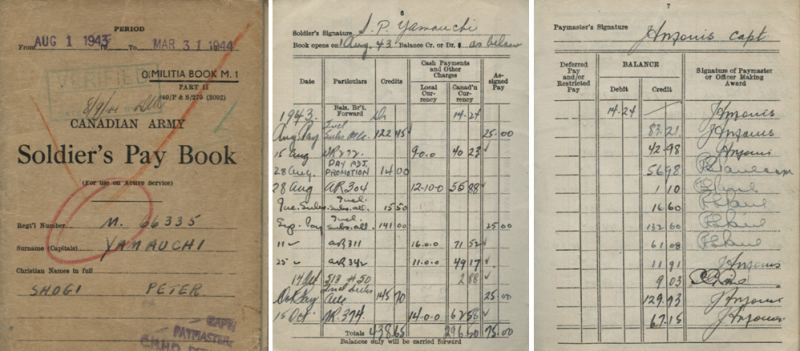 PERIOD
From AUG 1 1943 To MAR 31 1944
VERIFIED
O.MILITIA BOOK M. 1
PART II
CANADIAN ARMY
Soldier's Pay Book
(For use on Active Service)
Regt'l Number M. 66335
Surname (Capitals) YAMAUCHI
Christian Names in full
SHOGI PETER
CAPT
PAYMASTER
6
Soldier's Signature S. P. Yamauchi
Book opens on 1 Aug. 43 Balance Cr. or Dr. $ as below
Date Particulars Credits Cash Payments and Other Charges Assigned Pay
Local Currency Canad'n Currency
Bals. Br't. Forward
1943. Dr 14.24
Aug Pay Incl Subs. 122 45 25.00
15 Aug AR 272 9.0.0 40 23
28 Aug PAY ADJ. PROMOTION 14.00
28 Aug AR 304 12.10.0 55 88
Subs. 15 50
Sep. Pay Incl. Subs. all. 141.00 25.00
11 " AR 311 16.0.0 71 52
25 " AR 342 11.0.0 49 17
14 Oct 518 # 50 2 88
Oct Pay Incl Subs Alls 145 70 25.00
15 Oct AR 374 14.0.0 62 58
Totals 438 65 296 50 75.00
Balances only will be carried forward
7
Paymaster's Signature Capt
Deferred Pay and/or Restricted Pay
BALANCE
Debit Credit
Signature of Paymaster or Officer Making Award
14.24
83.21
42.98
56.98
1 10
16 60
132 60
61 08
11.91
9 03
129.73
67.15